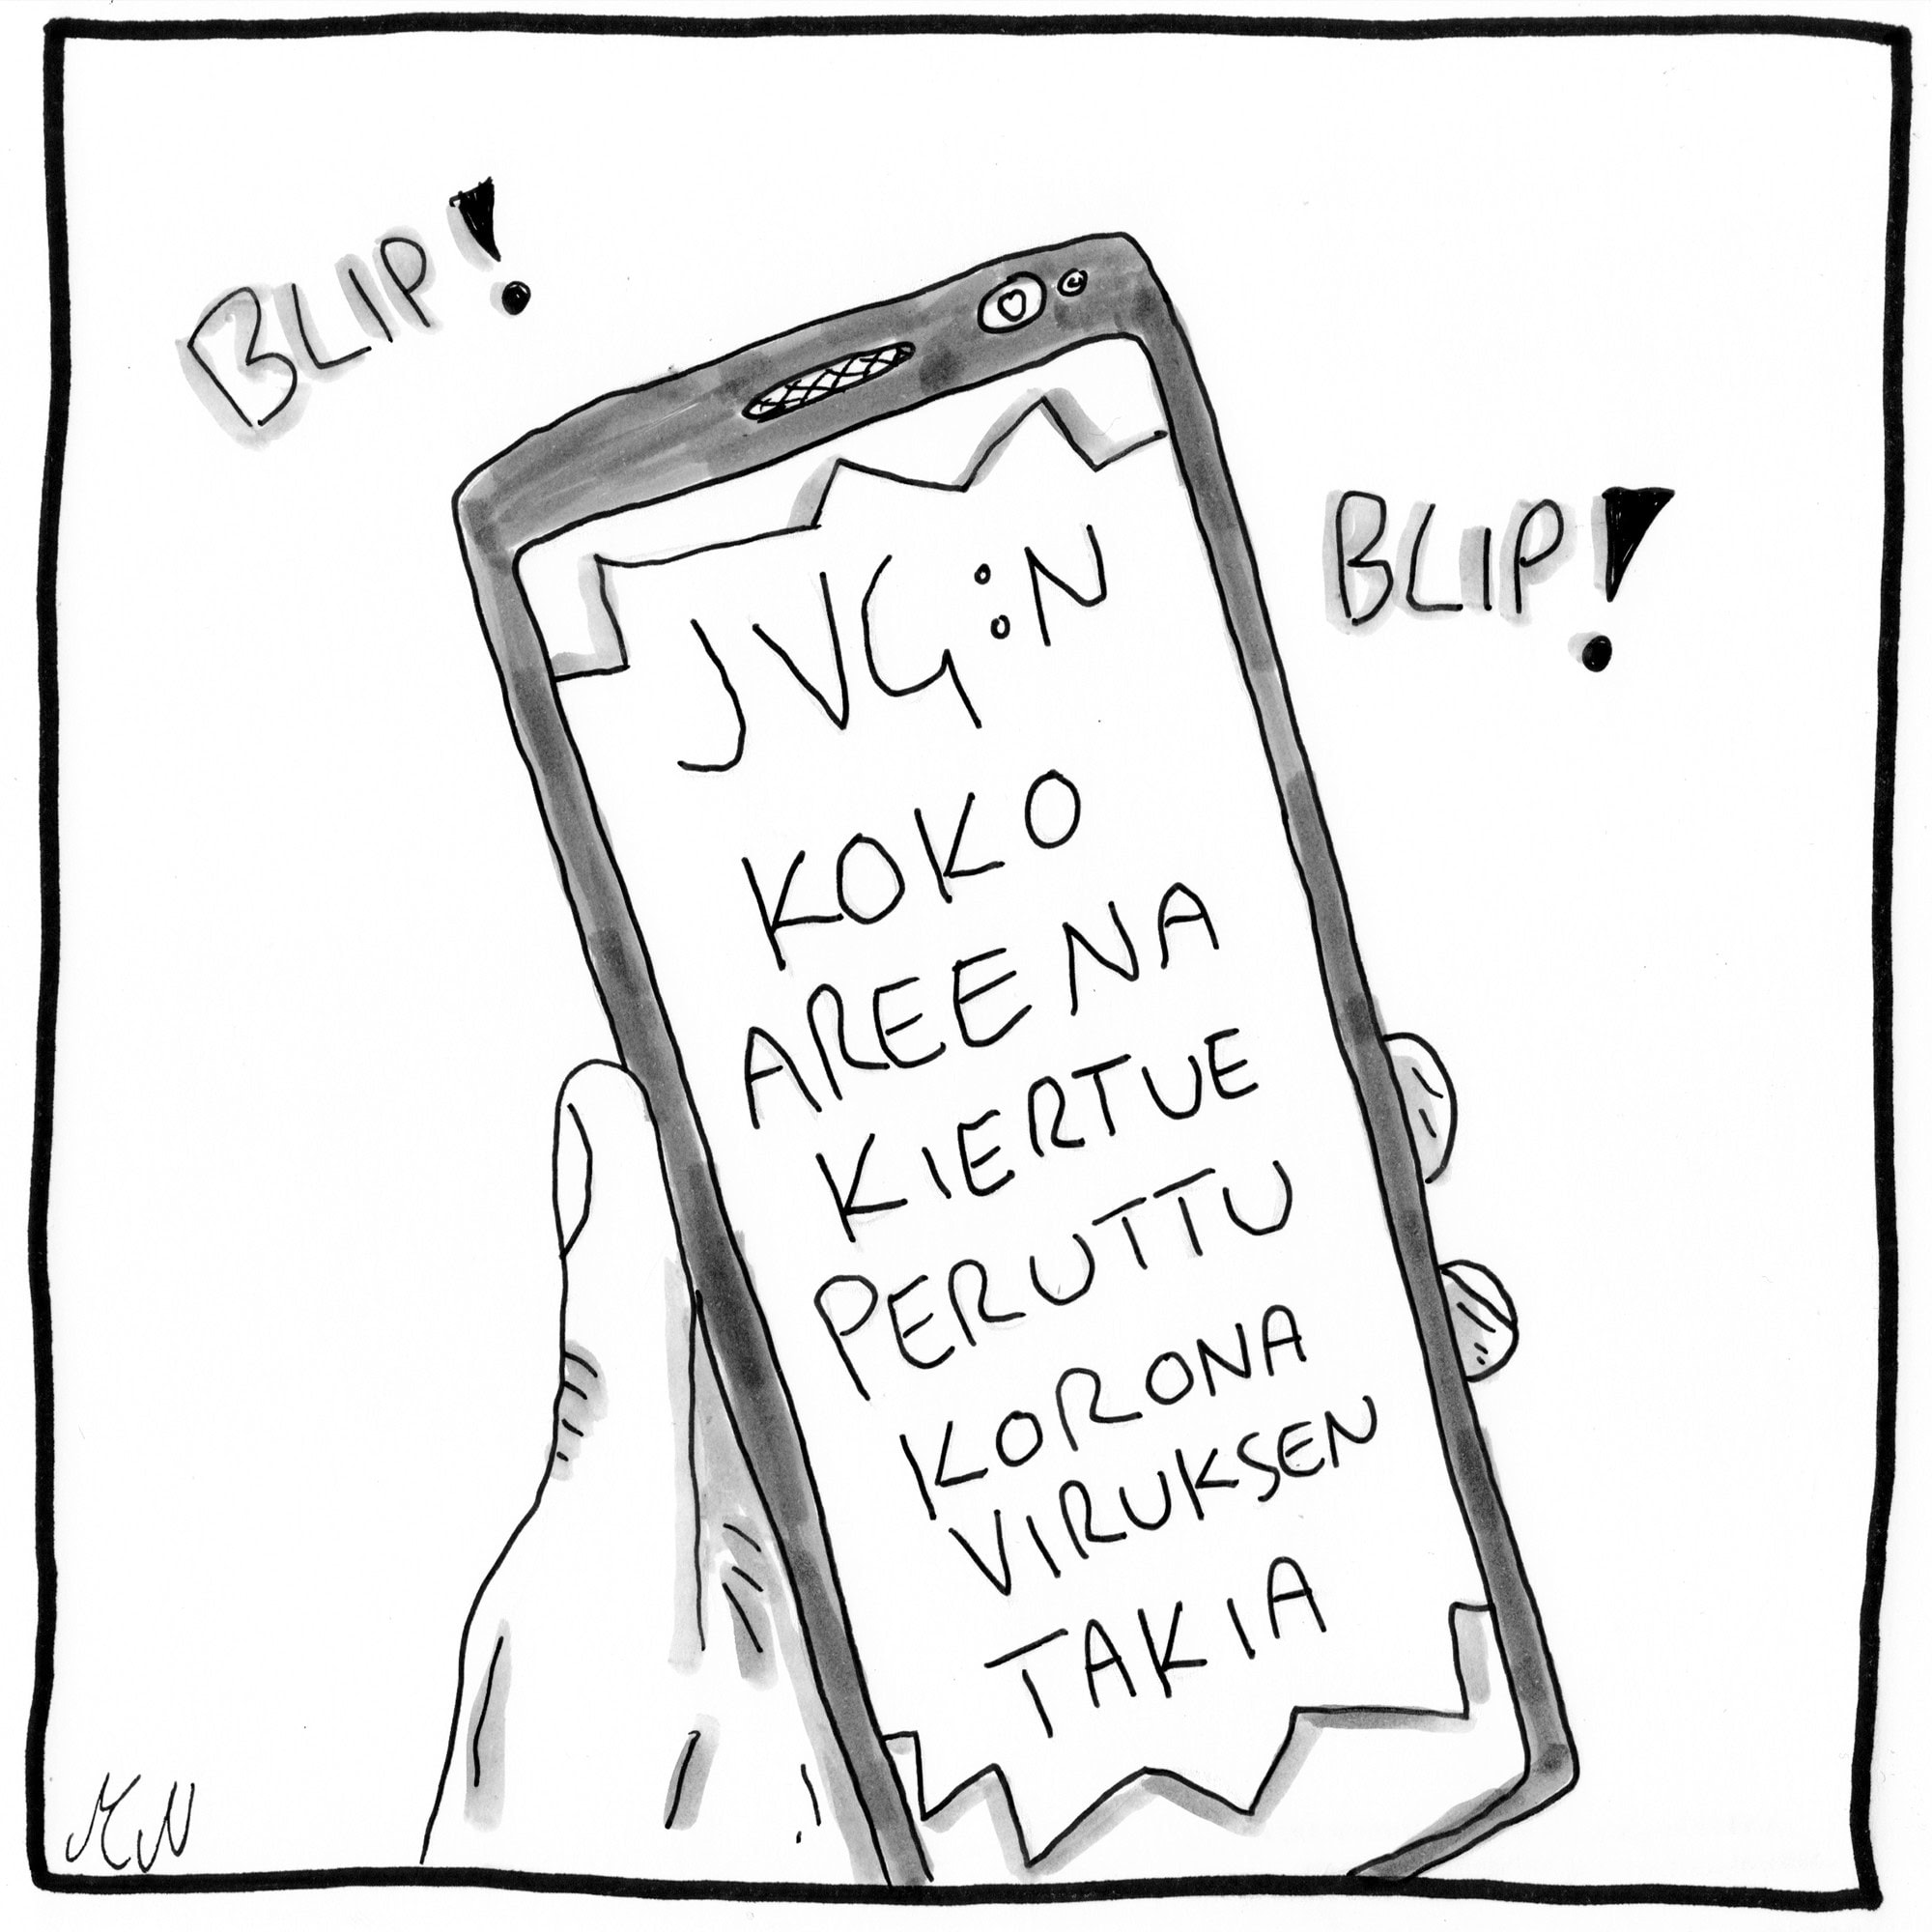 BLIP!
BLIP!
JVG:N
KOKO
AREENA
KIERTUE
PERUTTU
KORONA
VIRUKSEN
TAKIA
MN